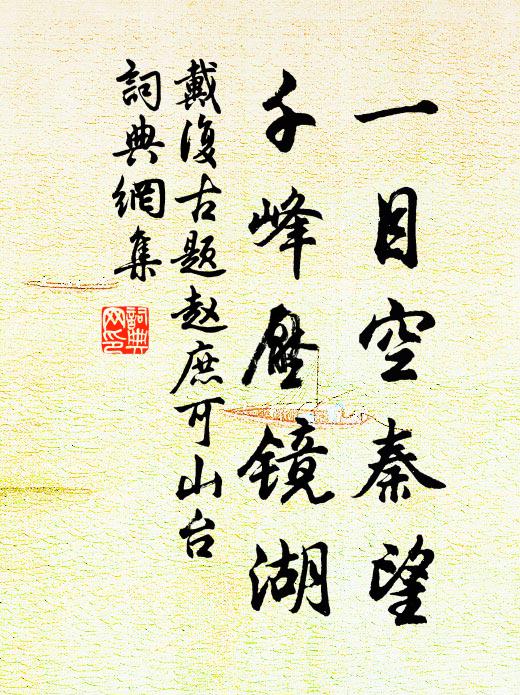 一目空秦望
千峰壓镜湖
戴復古题赵庶可山台
詞典網集
詞典網印